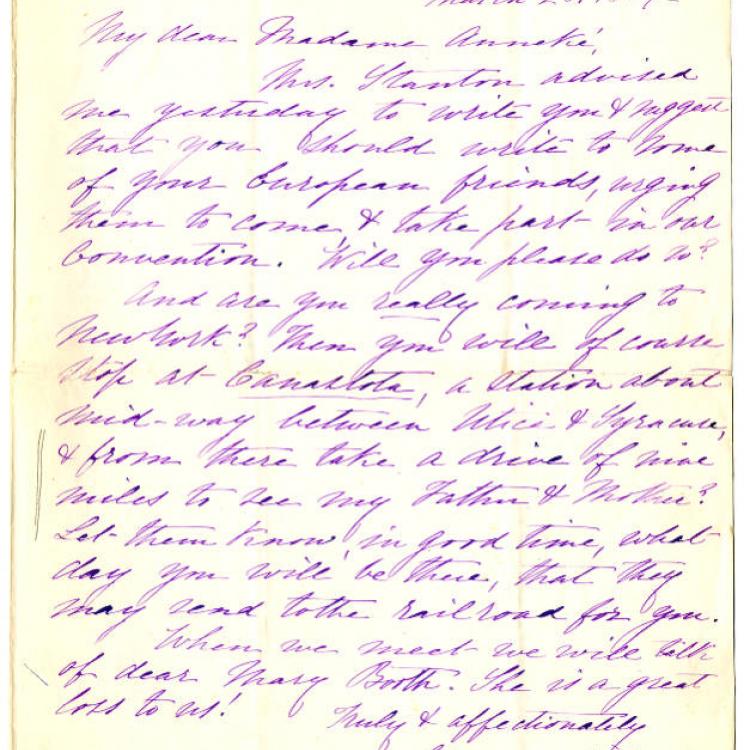 My dear Madame Anneké,
Mrs. Stanton advised
me yesterday to write you & suggest
that you should write to some
of your European friends, urging
them to come & take part in our
Convention. Will you please do so?
And are you really coming to
New York? Then you will of course
stop at Canastota, a station about
mid-way between Utica & Syracuse,
& from there take a drive of nine
miles to see my Father & Mother?
Let them know, in good time, what
day you will be there, that they
may send to the railroad for you.
When we meet we will talk
of dear Mary Booth. She is a great
loss to us!
Truly & affectionately